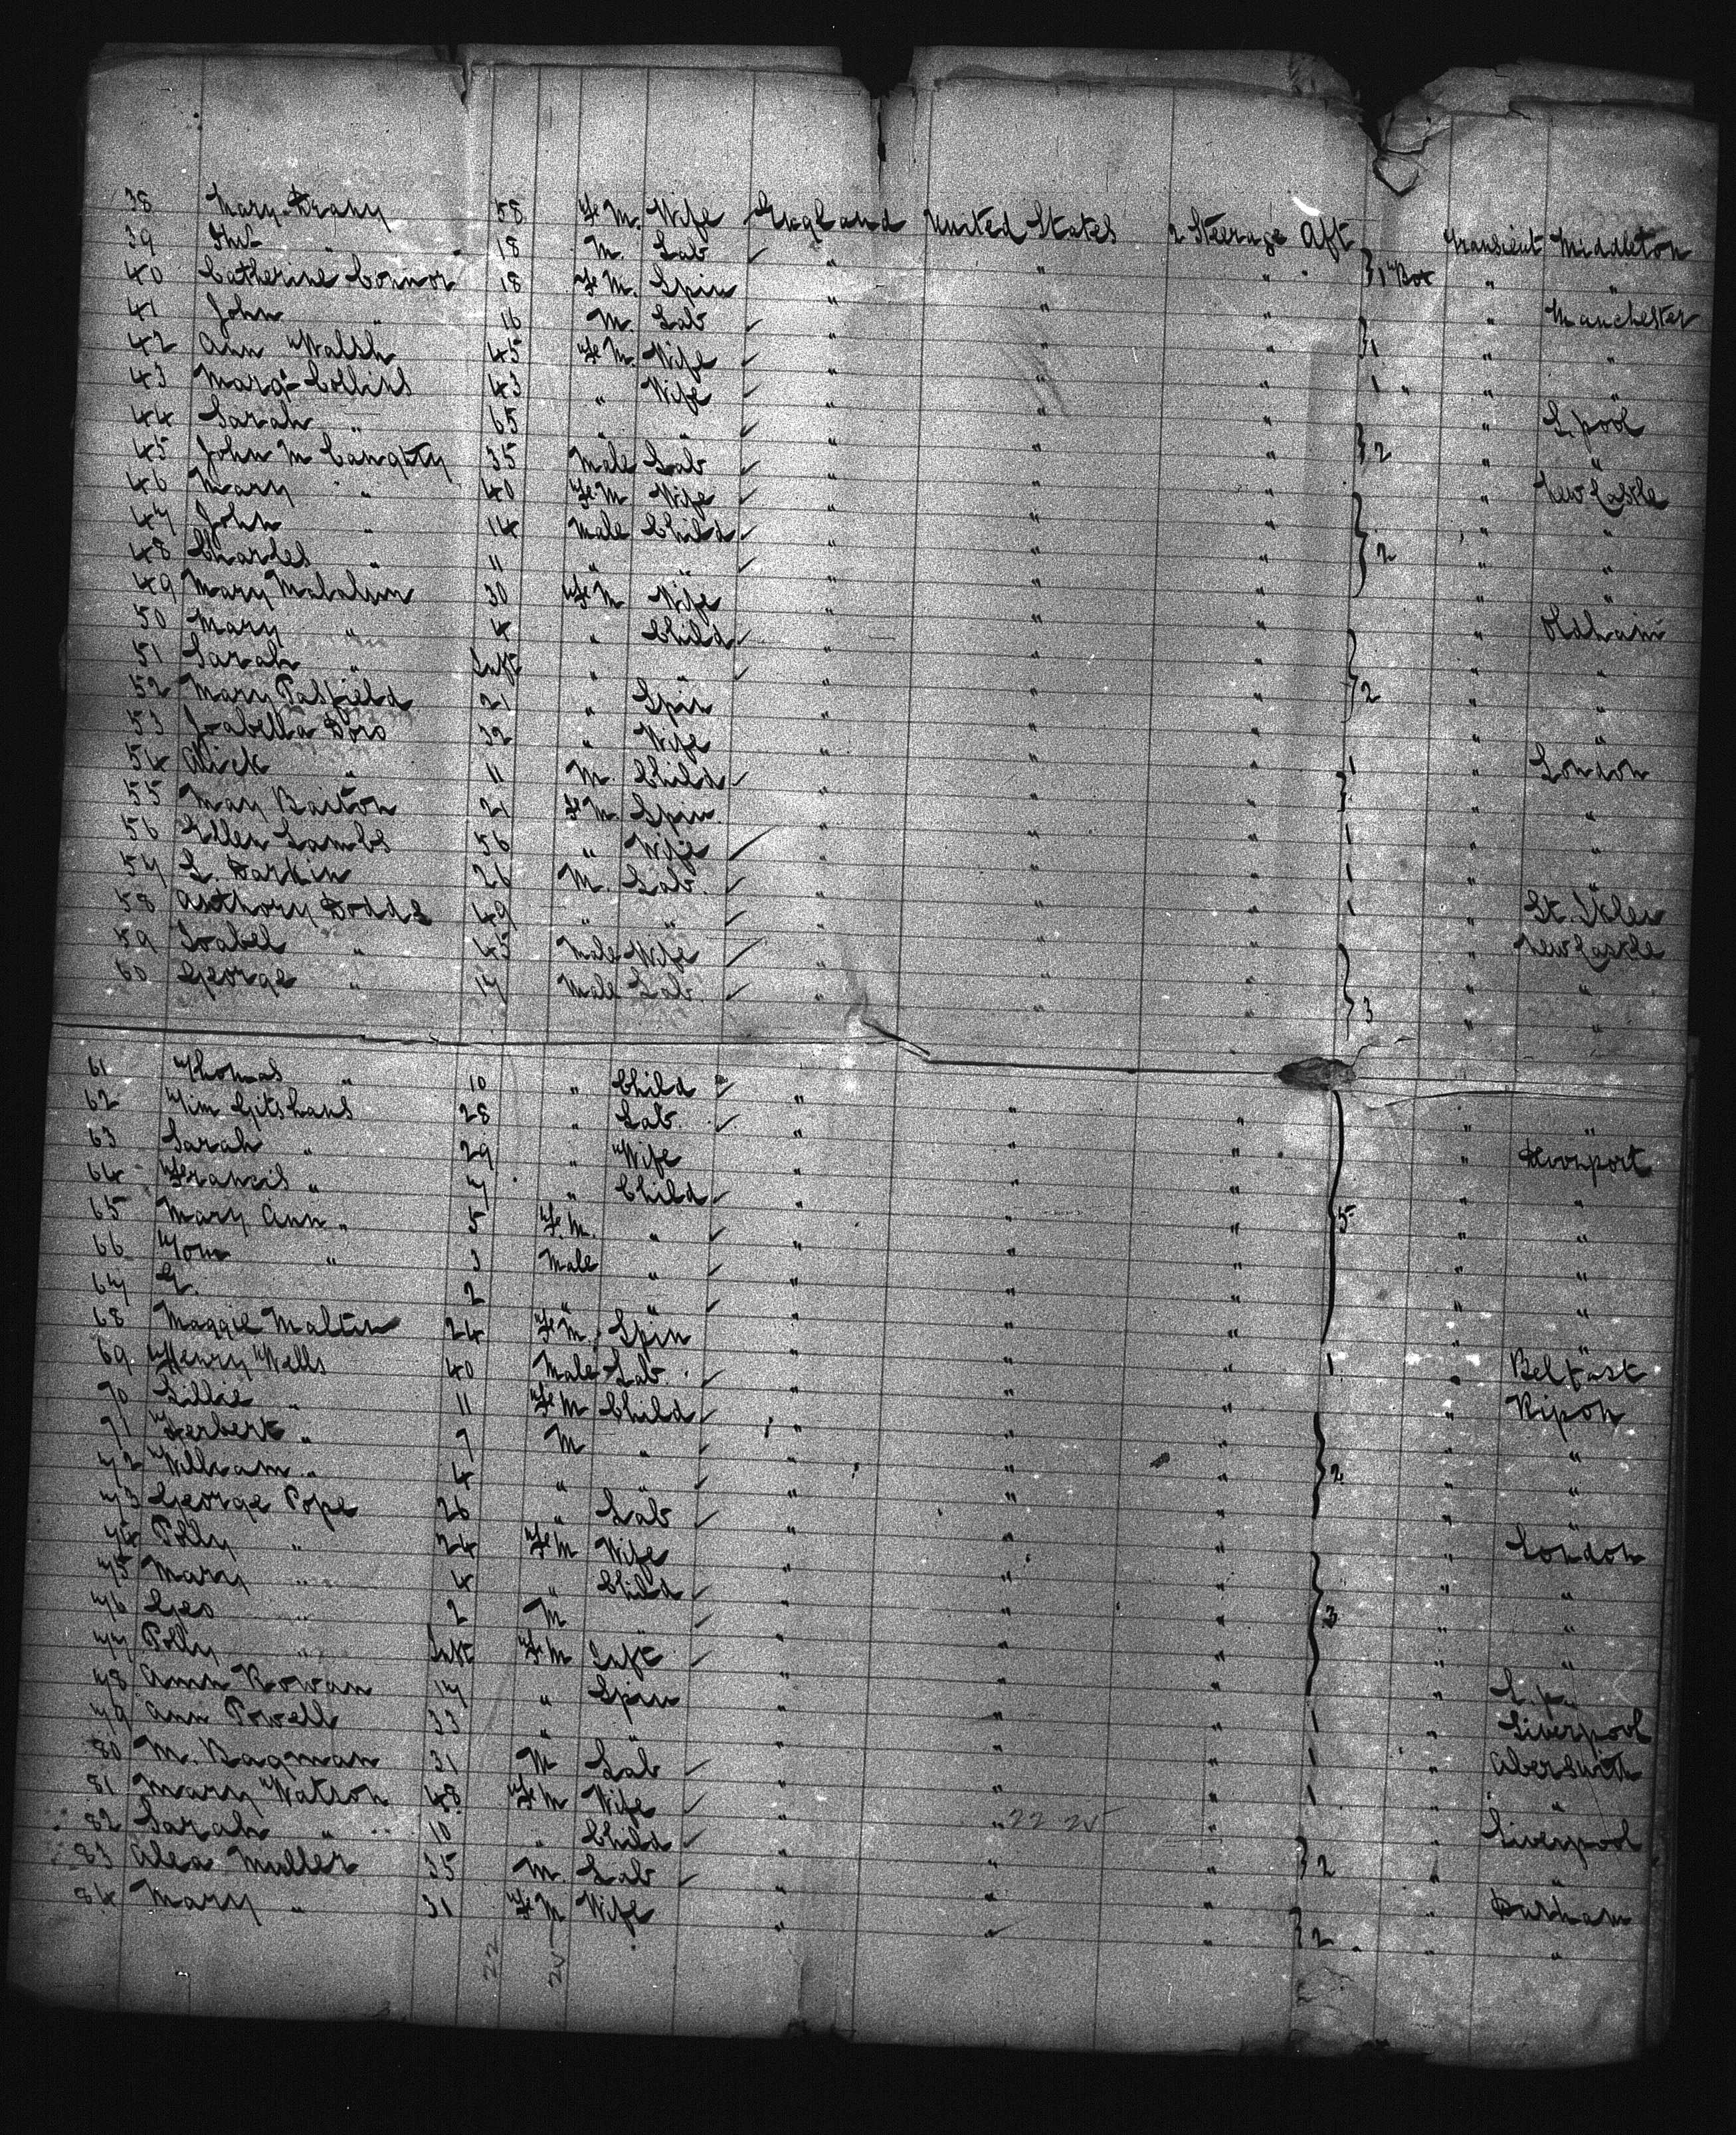 38 Mary Drany 58 Fe M. Wife England United States 2 Steerage Aft Transient Middleton
39 " 18 M. Lab " " " } 1 Box " "
40 Catherine Connor 18 Fe M. Spin " " " " Manchester
41 John " 16 M. Lab " " " } 1 " "
42 Ann Walsh 45 Fe M. Wife " " " 1 " " "
43 Marg't Collins 43 " Wife " " " " L.pool
44 Sarah " 65 " " " " " } 2 " "
45 John McCaughty 35 Male Lab " " " " New Castle
46 Mary " 40 Fe M Wife " " " " "
47 John " 14 Male Child " " " } 2 " "
48 Charles " 11 " " " " " " "
49 Mary 30 Fe M Wife " " " " Oldham
50 Mary " 4 " Child " " " " "
51 Sarah " Inft " " " " " } 2 " "
52 Mary Pasfield 21 " Spin " " " " "
53 Isabella 32 " Wife " " " 1 " London
54 " 11 M. Child " " " } " "
55 May Baiton 21 Fe M. Spin " " " 1 " "
56 Ellen Lambs 56 " Wife " " " 1 " "
57 L. Darkin 26 M. Lab. " " " 1 " St.
58 Anthony Dodds 49 " " " " " " New Castle
59 Isabel " 45 Male Wife " " " " "
60 George " 17 Male Lab. " " " } 3 " "
61 Thomas " 10 " Child " " " " "
62 28 " Lab. " " " " Devonport
63 Sarah " 29 " Wife " " " " "
64 Francis " 7 " Child " " " } 5 " "
65 Mary Ann " 5 Fe. M. " " " " " "
66 Tom " 3 Male " " " " " "
67 2 " " " " " " "
68 Maggie 24 Fe M. Spin " " " 1 " Belfast
69 Henry Wells 40 Male Lab. " " " " Ripon
70 Lillie " 11 Fe M Child " " " " "
71 Herbert " 7 M " " " " } 2 " "
72 William " 4 " " " " " " "
73 George Pope 26 " Lab " " " " London
74 Polly " 24 Fe M Wife " " " " "
75 Mary " 4 " Child " " " } 3 " "
76 Geo " 2 M " " " " " "
77 Polly " Inft Fe M Inft " " " "
78 Ann Rowan 17 " Spin " " " 1 " Liverpool
79 Ann Powell 33 " " " " " 1 "
80 M. Bagman 31 M Lab " " " 1 " "
81 Mary Watson 48 Fe M Wife " " 22 2 " " Liverpool
82 Sarah " 10 " Child " " " } 2 " "
83 Alex Muller 35 M. Lab " " " " Durham
84 Mary " 31 Fe M Wife " " " } 2 " "
22